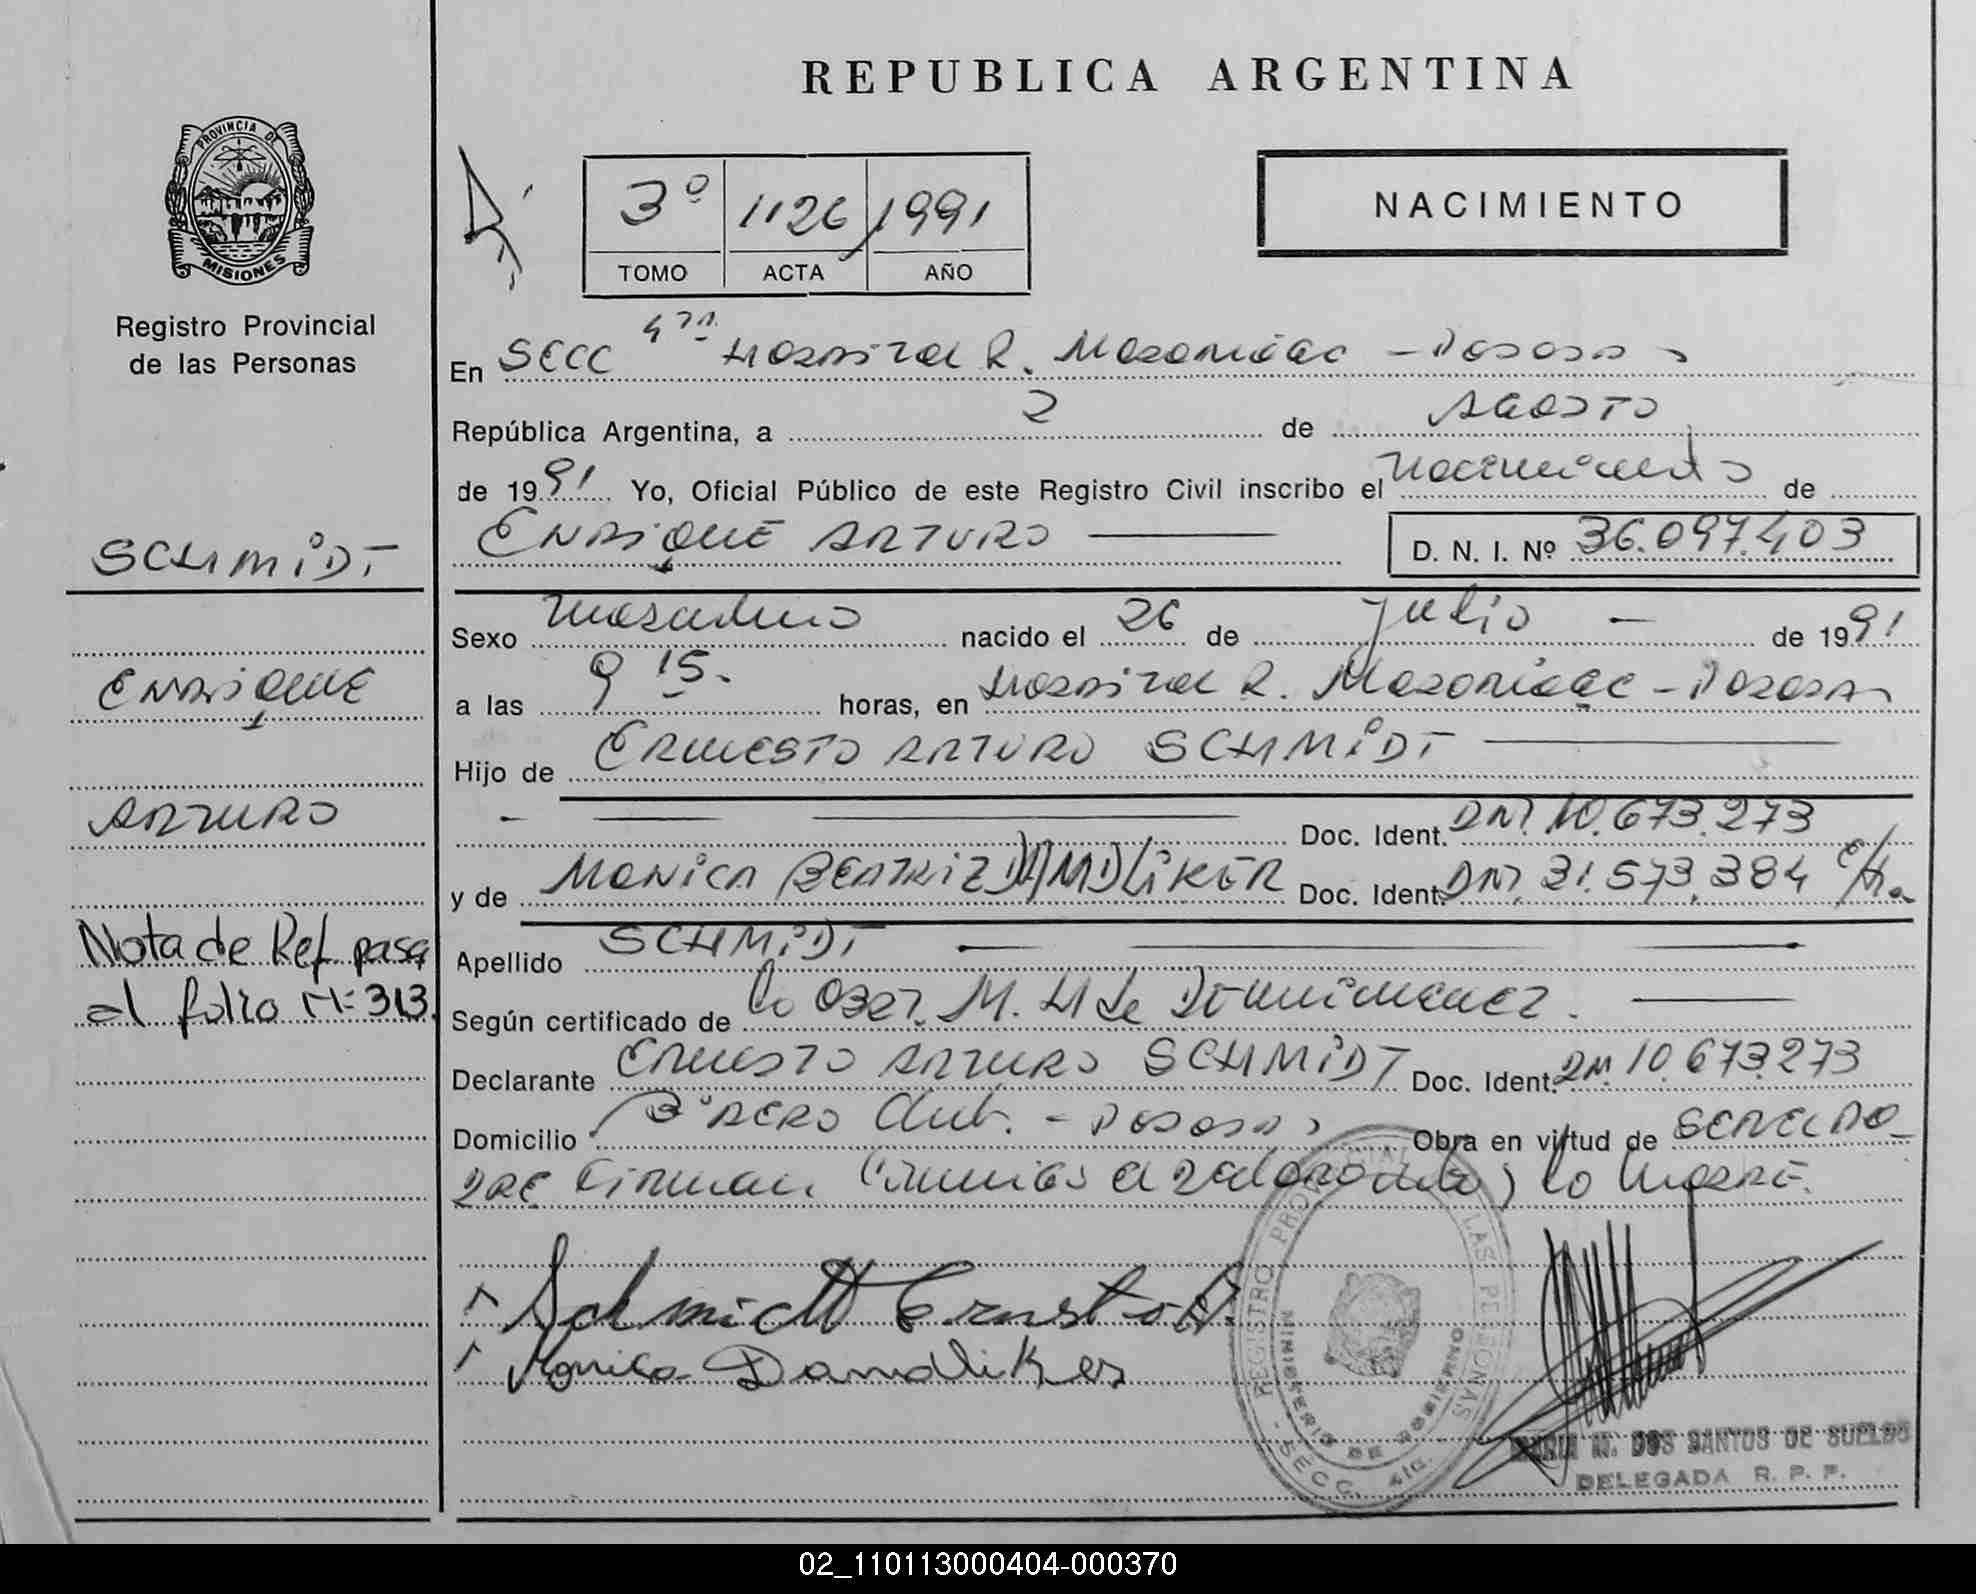 REPUBLICA ARGENTINA
PROVINCIA DE
MISIONES
Registro Provincial
de las Personas
3º 1126 1991
TOMO ACTA AÑO
NACIMIENTO
En SECC 4ta Hospital R. Madariaga - Posadas
República Argentina, a 2 de Agosto
de 1991 Yo, Oficial Público de este Registro Civil inscribo el Nacimiento de
ENRIQUE ARTURO D. N. I. Nº 36.097.403
Sexo Masculino nacido el 26 de Julio de 1991
a las 9 15. horas, en Hospital R. Madariaga - Posadas
Hijo de ERNESTO ARTURO SCHMIDT
Doc. Ident. DNI 10.673.273
y de MONICA BEATRIZ DANDLIKER Doc. Ident. DNI 21.573.384
Apellido SCHMIDT
Según certificado de la Obst. M. H de
Declarante ERNESTO ARTURO SCHMIDT Doc. Ident. DNI 10.673.273
Domicilio Bº AERO Club. - Posadas Obra en virtud de
firman el declarante y la madre.
Schmidt Ernesto A.
Monica Dandliker
SCHMIDT
ENRIQUE
ARTURO
Nota de Ref. pasa
al folio Nº 313.
REGISTRO PROVINCIAL DE LAS PERSONAS
MINISTERIO DE GOBIERNO
- SECC. 4ta.
MARIA M. DOS SANTOS DE SUELDO
DELEGADA R. P. P.
02_110113000404-000370